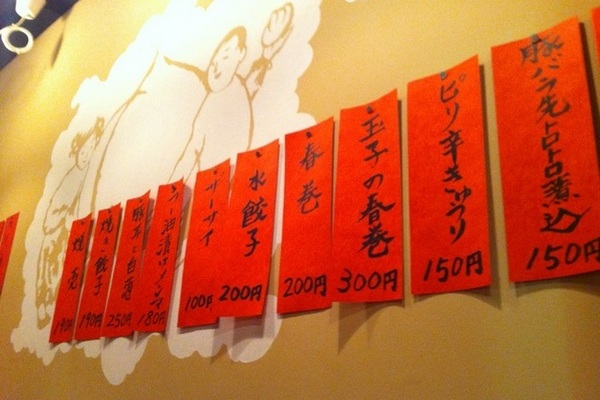 豚バラ先トロトロ煮込
150円
ピリ辛きゅうり
150円
玉子の春巻
300円
春巻
200円
水餃子
200円
ザーサイ
100円
ラー油漬けメンマ
180円
250円
焼き餃子
190円
焼売
190円